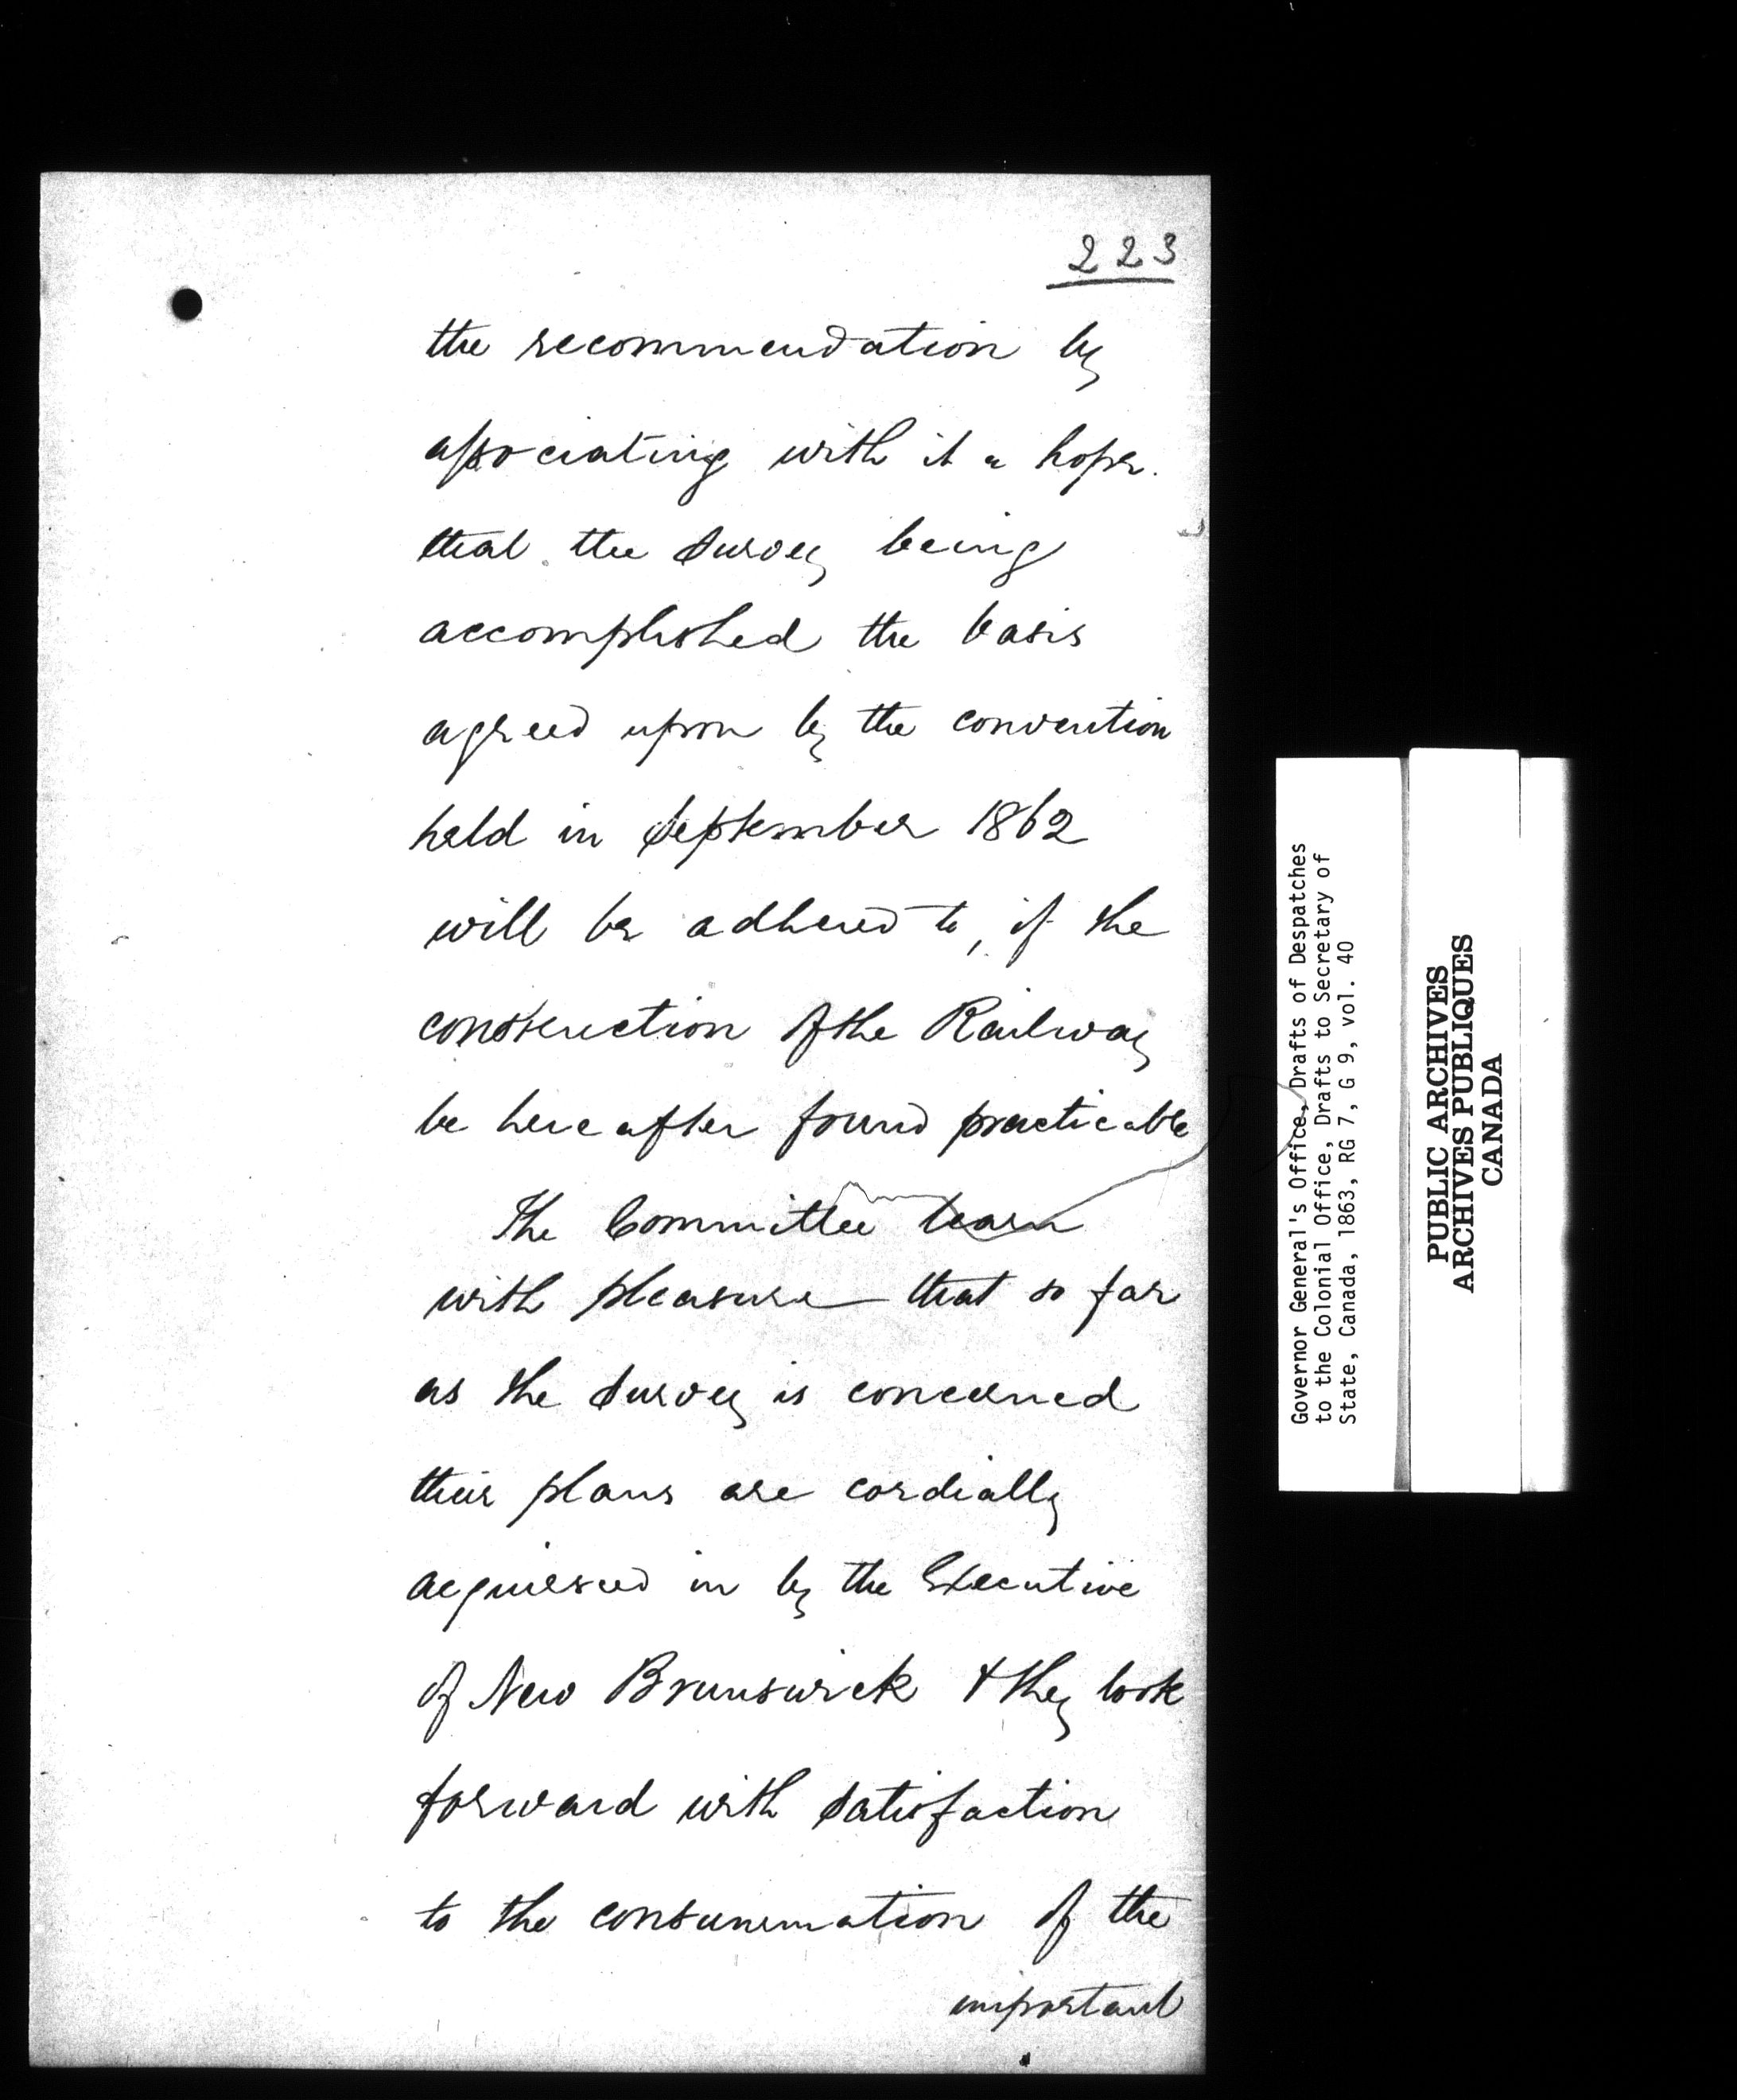 223
the recommendation by
associating with it a hope.
that the Survey being
accomplished the basis
agreed upon by the convention
held in September 1862
will be adhered to, if the
construction of the Railway
be hereafter found practicable
The Committee learn
with pleasure that so far
as the Survey is concerned
their plans are cordially
acquiesced in by the Executive
of New Brunswick & they look
forward with satisfaction
to the consummation of the
important
Governor General's Office, Drafts of Despatches
to the Colonial Office, Drafts to Secretary of
State, Canada, 1863, RG 7, G 9, vol. 40
PUBLIC ARCHIVES
ARCHIVES PUBLIQUES
CANADA